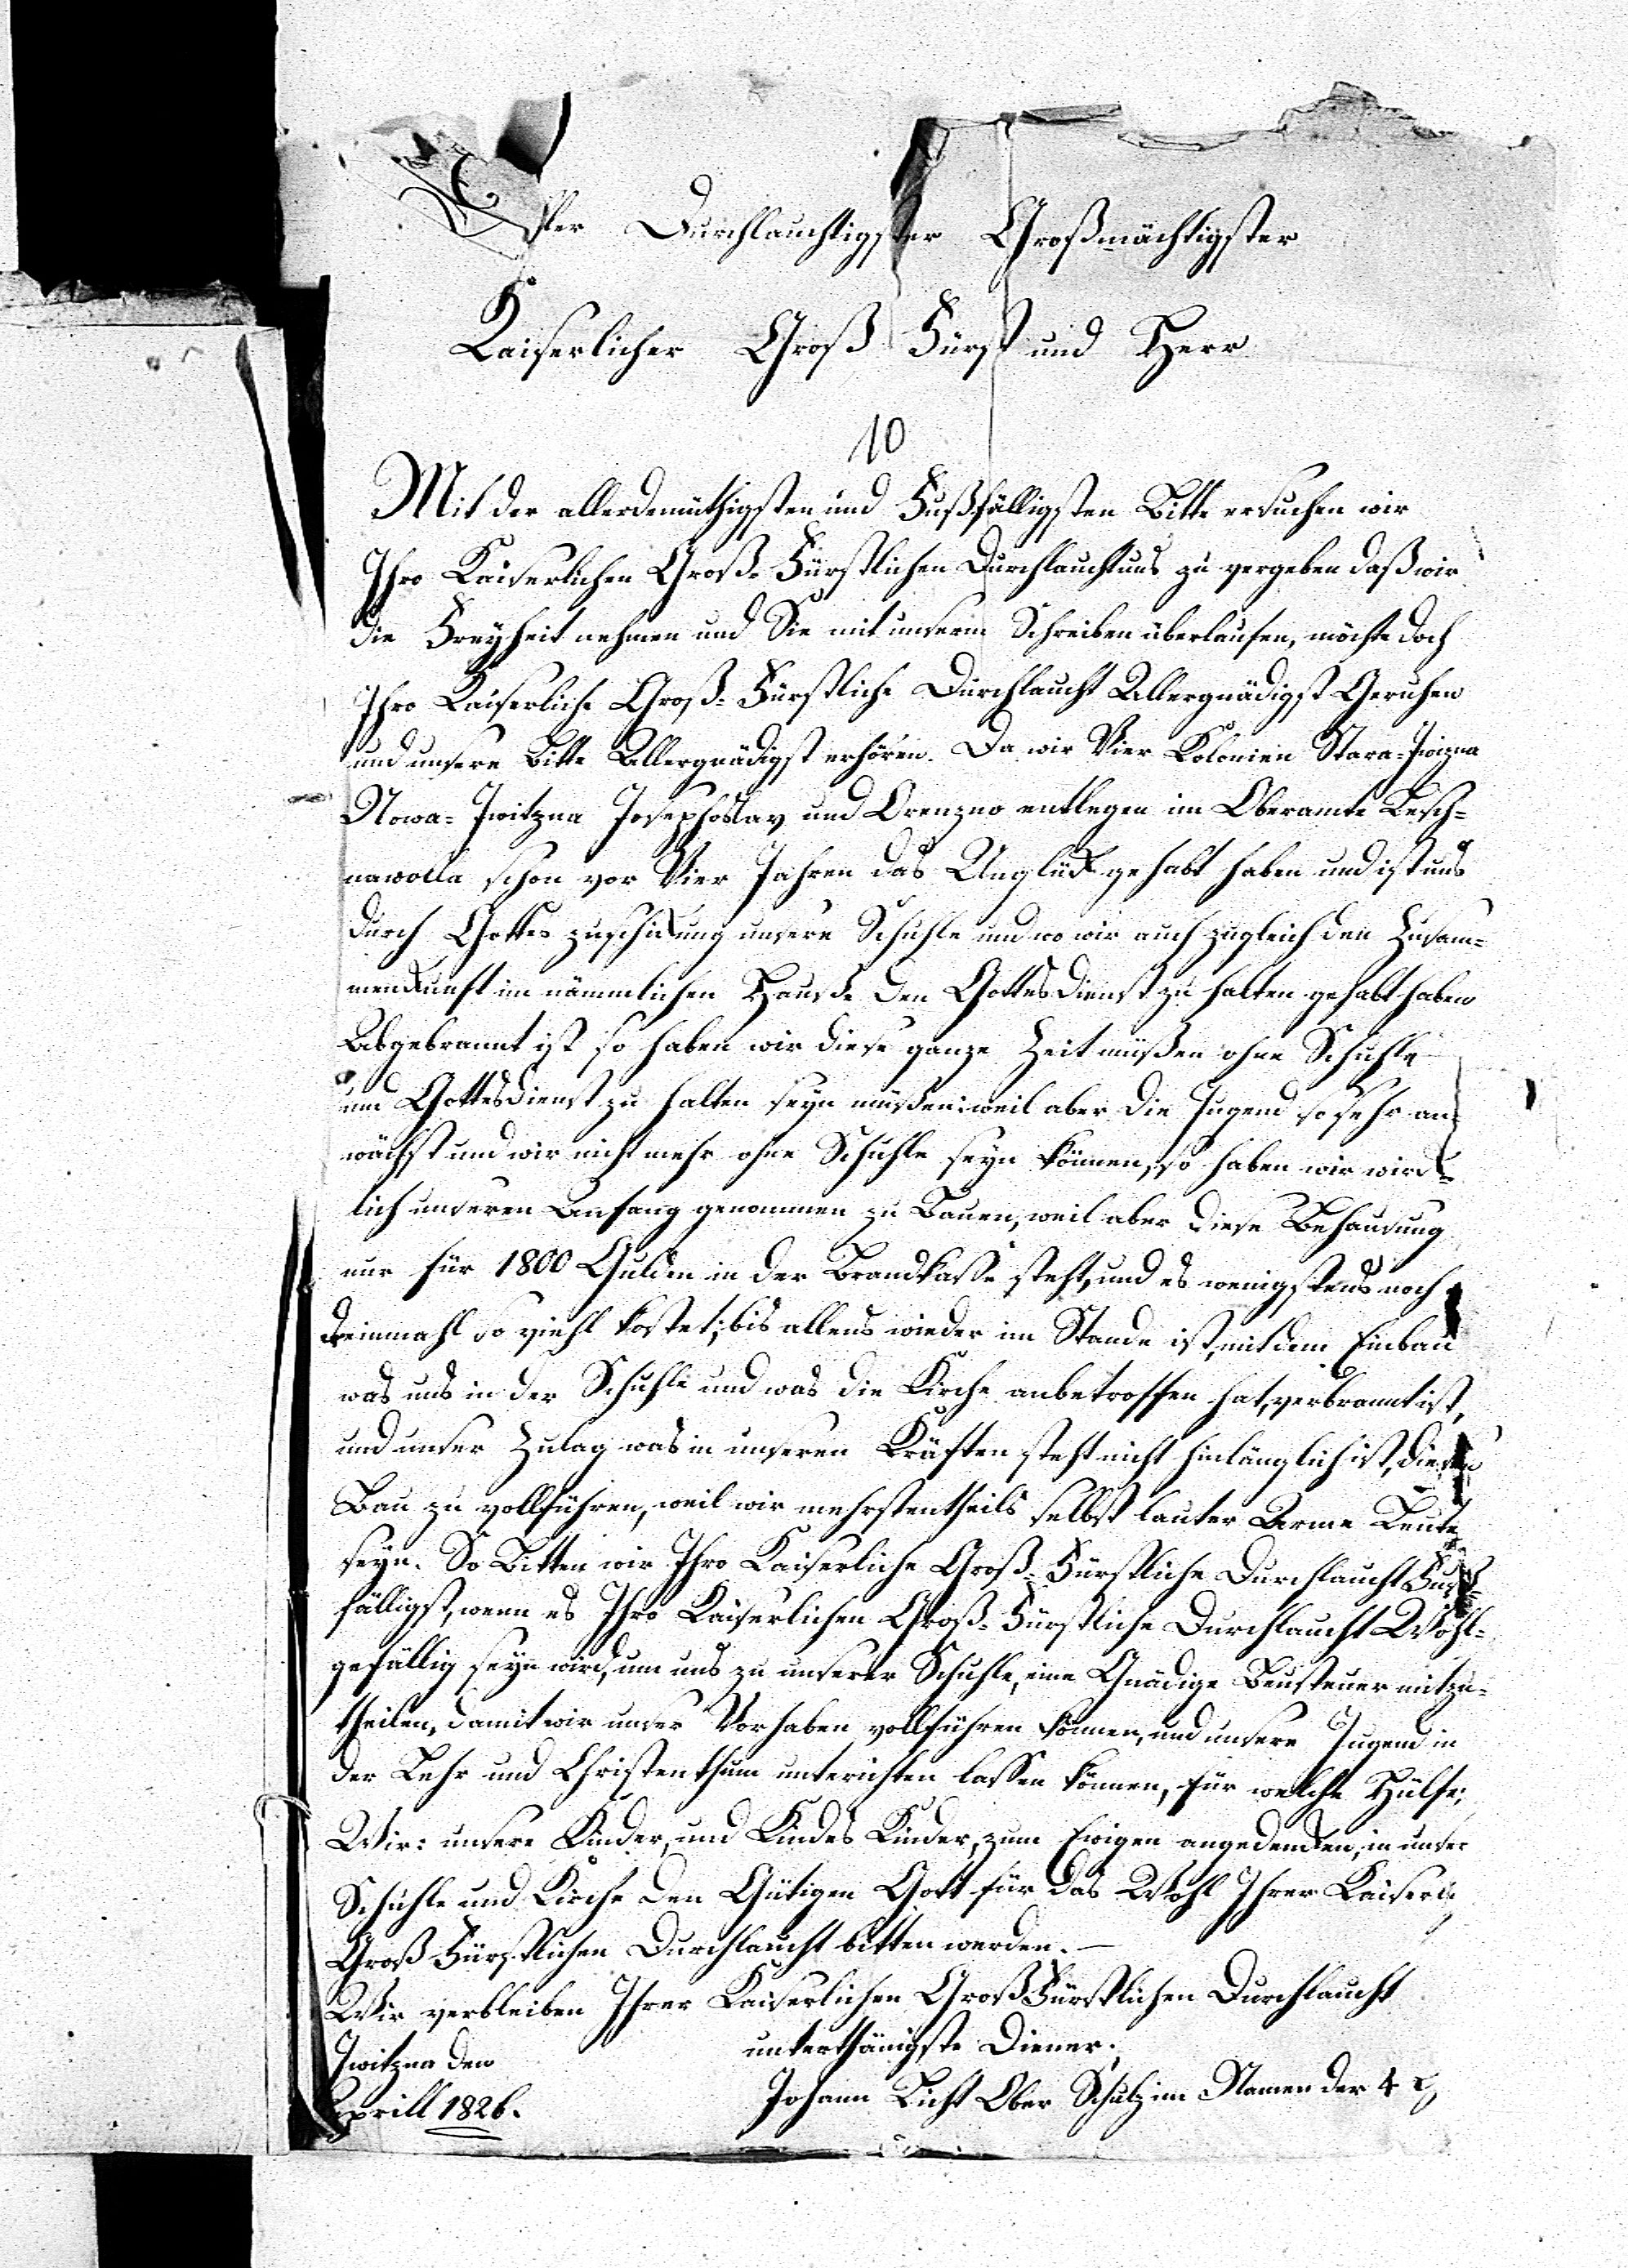 Aller Durchlauchtigster Großmächtigster
Kaiserlicher Groß Fürst und Herr
10
Mit der allerdemüthigsten und Fußfälligsten Bitte ersuchen wir
Ihro Kaiserlichen Groß-Fürstlichen Durchlaucht uns zu vergeben daß wir
die Freyheit nehmen und Sie mit unserm Schreiben überlaufen, möchte doch
Ihro Kaiserliche Groß-Fürstliche Durchlaucht Allergnädigst Geruhen
und unsere Bitte Allergnädigst erhören. Da wir Vier Kolonien Stara-Iwizna
Nowa-Iwitzna Josephoslav und Orenzno entlegen im Oberamte Lesch-
nawolla schon vor Vier Jahren das Unglük gehabt haben und ist uns
durch Gottes zuschikung unsere Schuhle und wo wir auch zugleich den Zusam-
menkunft im nämmlichen Hause den Gottesdienst zu halten gehabt haben
Abgebrannt ist so haben wir diese ganze Zeit müßen ohne Schuhle
um Gottesdienst zu halten seyn müßen: weil aber die Jugend so sehr an
wächst und wir nicht mehr ohne Schuhle seyn können, so haben wir wirk-
lich unseren Anfang genommen zu Bauen, weil aber diese Behausung
nur für 1800 Gulden in der Brandkasse steht, und es wenigstens noch
dreinmahl so viehl kostet; bis allens wieder im Stande ist, mit dem Einbau
was uns in der Schuhle und was die Kirche anbetroffen hat, verbrannt ist,
und unser Zulag was in unseren Kräften steht nicht hinlänglich ist, diesen
Bau zu vollführen, weil wir mehrstentheils selbst lauter Arme Leute
seyn. So Bitten wir Ihro Kaiserliche Groß-Fürstliche Durchlaucht Fuß-
fälligst, wenn es Ihro Kaiserlichen Groß-Fürstliche Durchlaucht Wohl-
gefällig seyn wird, um uns zu unserer Schuhle, eine Gnädige Beusteuer mitzu-
theilen, damit wir unser Vorhaben vollführen können, und unsere Jugend in
der Lehr und Christenthum unterichten lassen können, für welche Hülfe;
Wir: unsere Kinder, und Kindes Kinder, zum Ewigen angedenken, in unser
Schuhle und Kirche den Gütigen Gott für das Wohl Ihrer Kaiserl
Groß Fürstlichen Durchlaucht bitten werden.—
Wir verbleiben Ihrer Kaiserlichen Groß Fürstlichen Durchlaucht
Iwitzna den unterthänigste Diener;
Aprill 1826. Johann Licht Ober Schulz im Namen der 4